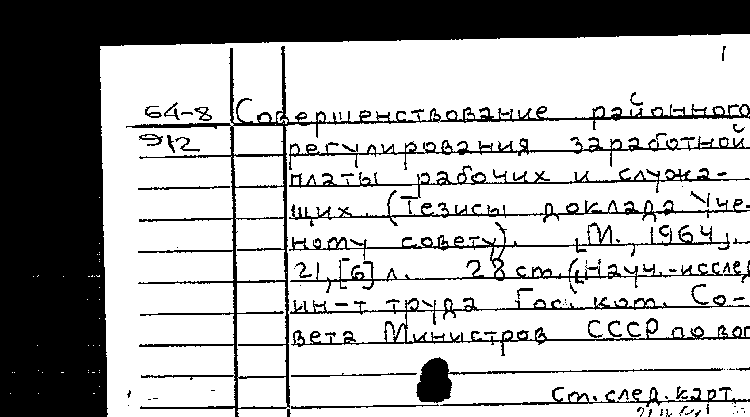 1
64-8 Совершенствование районного
912 регулирования заработной
платы рабочих и служа-
щих. (Тезисы доклада Уче-
ному совету). [М., 1964].
21, [6] л. 28 см. ([Науч.-исслед
ин-т труда Гос. ком. Со-
вета Министров СССР по воп
См. след. карт.